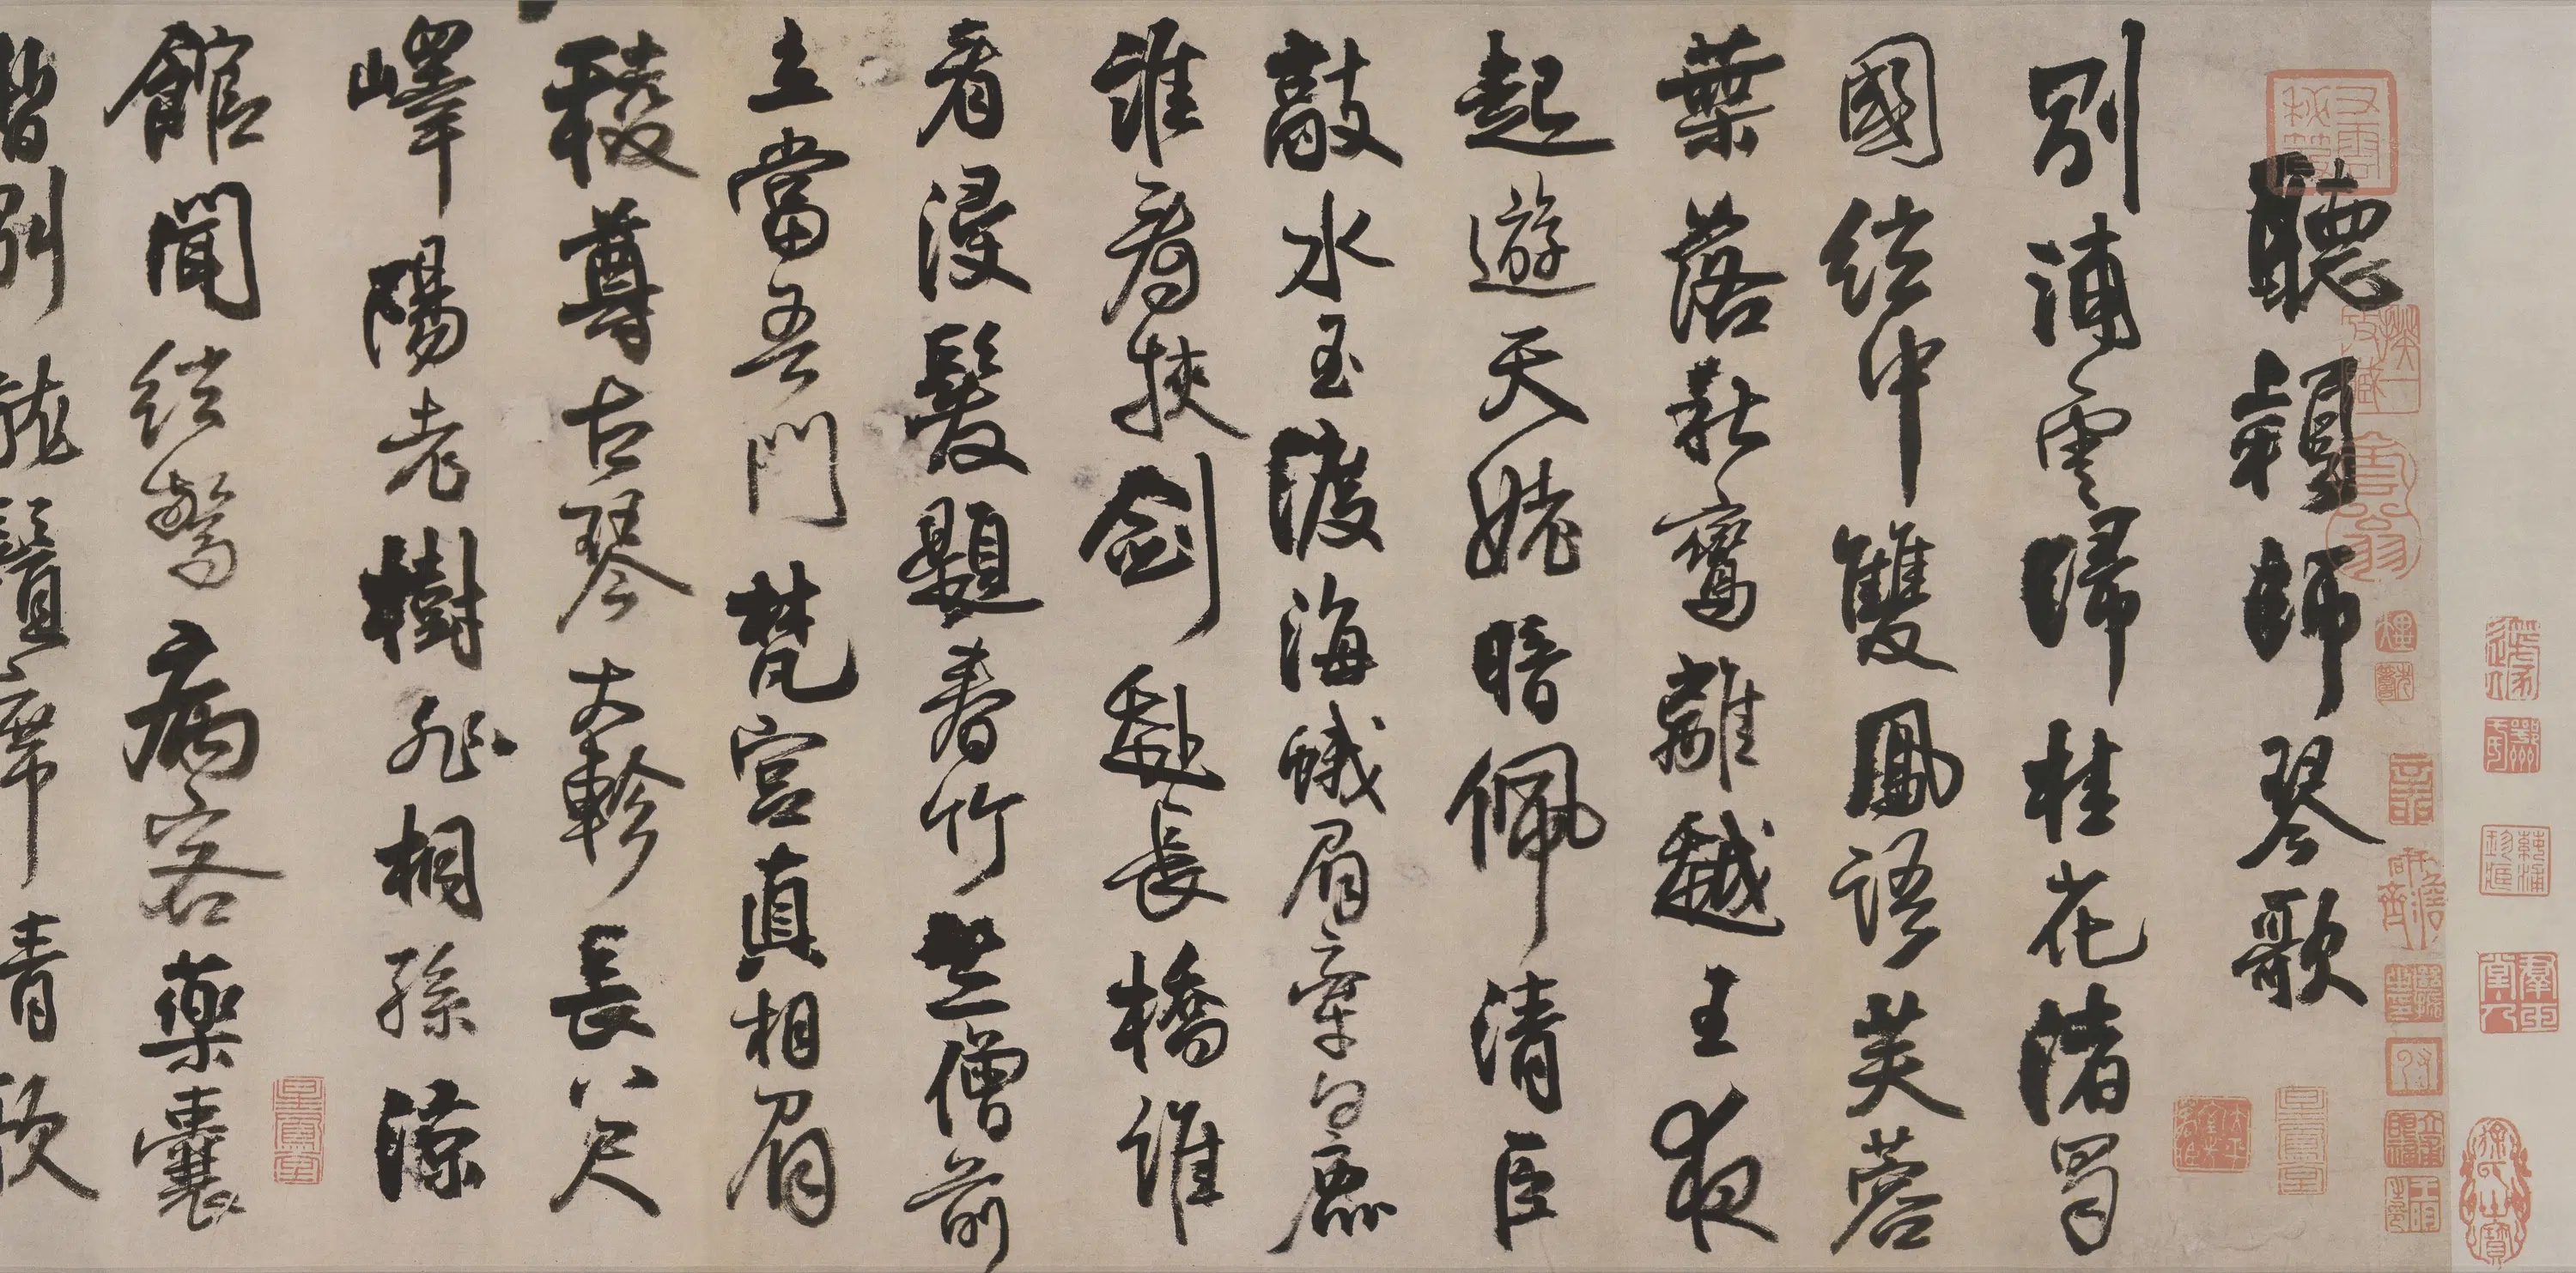 聽穎師琴歌
別浦雲歸桂花渚蜀
國絃中雙鳳語芙蓉
葉落秋鸞離越王夜
起遊天姥暗佩清臣
敲水玉渡海蛾眉牽白鹿
誰看挾劍赴長橋誰
看浸髮題春竹竺僧前
立當吾門梵宮真相眉
稜尊古琴大軫長八尺
嶧陽老樹非桐孫涼
館聞絃驚病客藥囊
暫別龍鬚席請歌